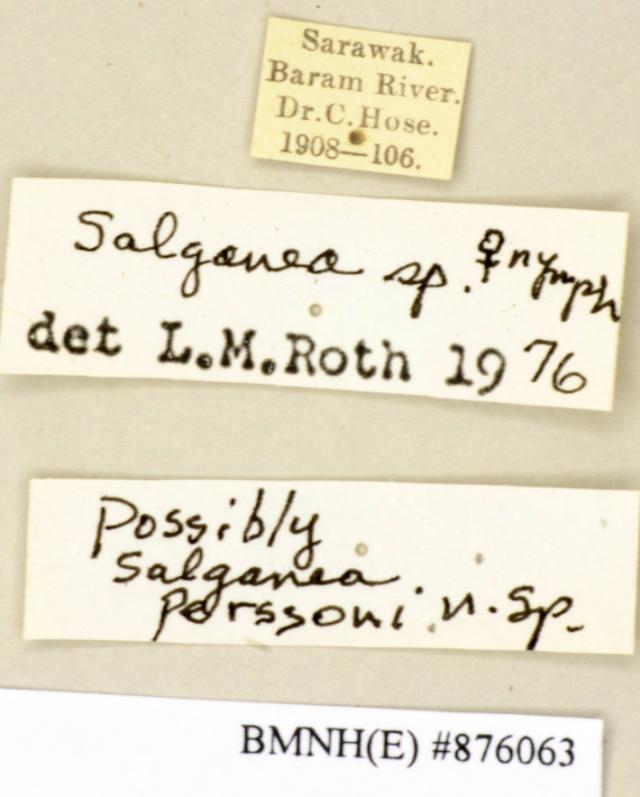 Sarawak.
Baram River.
Dr.C.Hose.
1908—106.
Salganea sp. ♀ nymph
det L.M.Roth 1976
Possibly
Salganea
perssoni n. sp.
BMNH(E) #876063